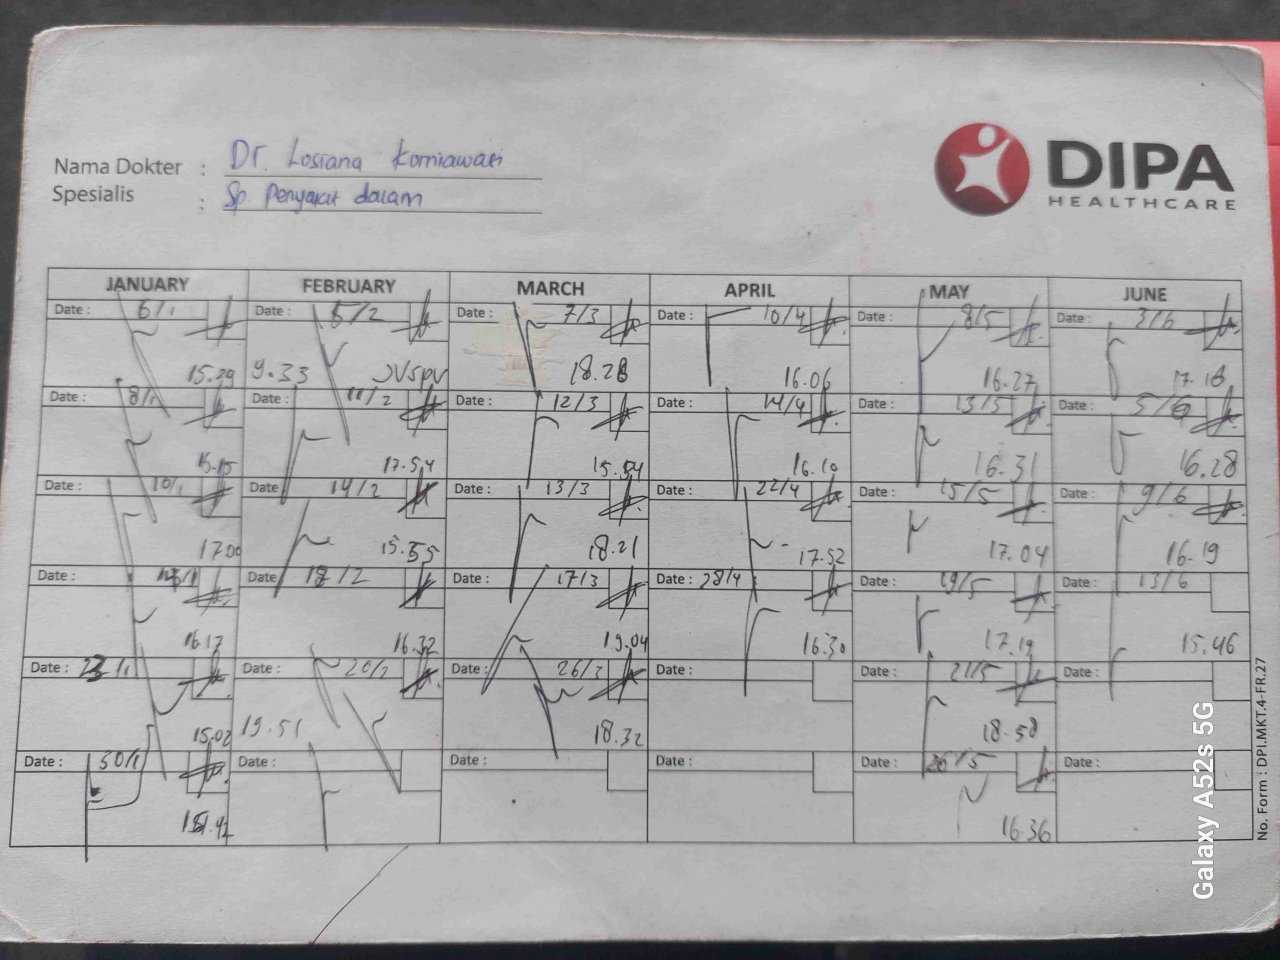 Nama Dokter : Dr. Losiana Korniawati
Spesialis : Sp. Penyakit dalam
DIPA
HEALTHCARE
JANUARY FEBRUARY MARCH APRIL MAY JUNE
Date : 6/1 Date : 5/2 Date : 7/3 Date : 10/4 Date : 8/5 Date : 3/6
15.29 9.33 18.28 16.06 16.27 17.18
Date : 8/1 Date : 11/2 Date : 12/3 Date : 14/4 Date : 13/5 Date : 5/6
15.15 17.54 15.54 16.10 16.31 16.28
Date : 10/1 Date 14/2 Date : 13/3 Date : 22/4 Date : 15/5 Date : 9/6
17.00 15.55 18.21 17.52 17.04 16.19
Date : Date 18/2 Date : 17/3 Date : 28/4 Date : 19/5 Date : 13/6
16.17 16.32 19.04 16.30 17.19 15.46
Date : 23/1 Date : 20/2 Date : 26/3 Date : Date : 21/5 Date :
15.02 19.51 18.32 18.58
Date : 30/1 Date : Date : Date : Date : 26/5 Date :
16.36
No. Form : DPI.MKT.4-FR.27
Galaxy A52s 5G